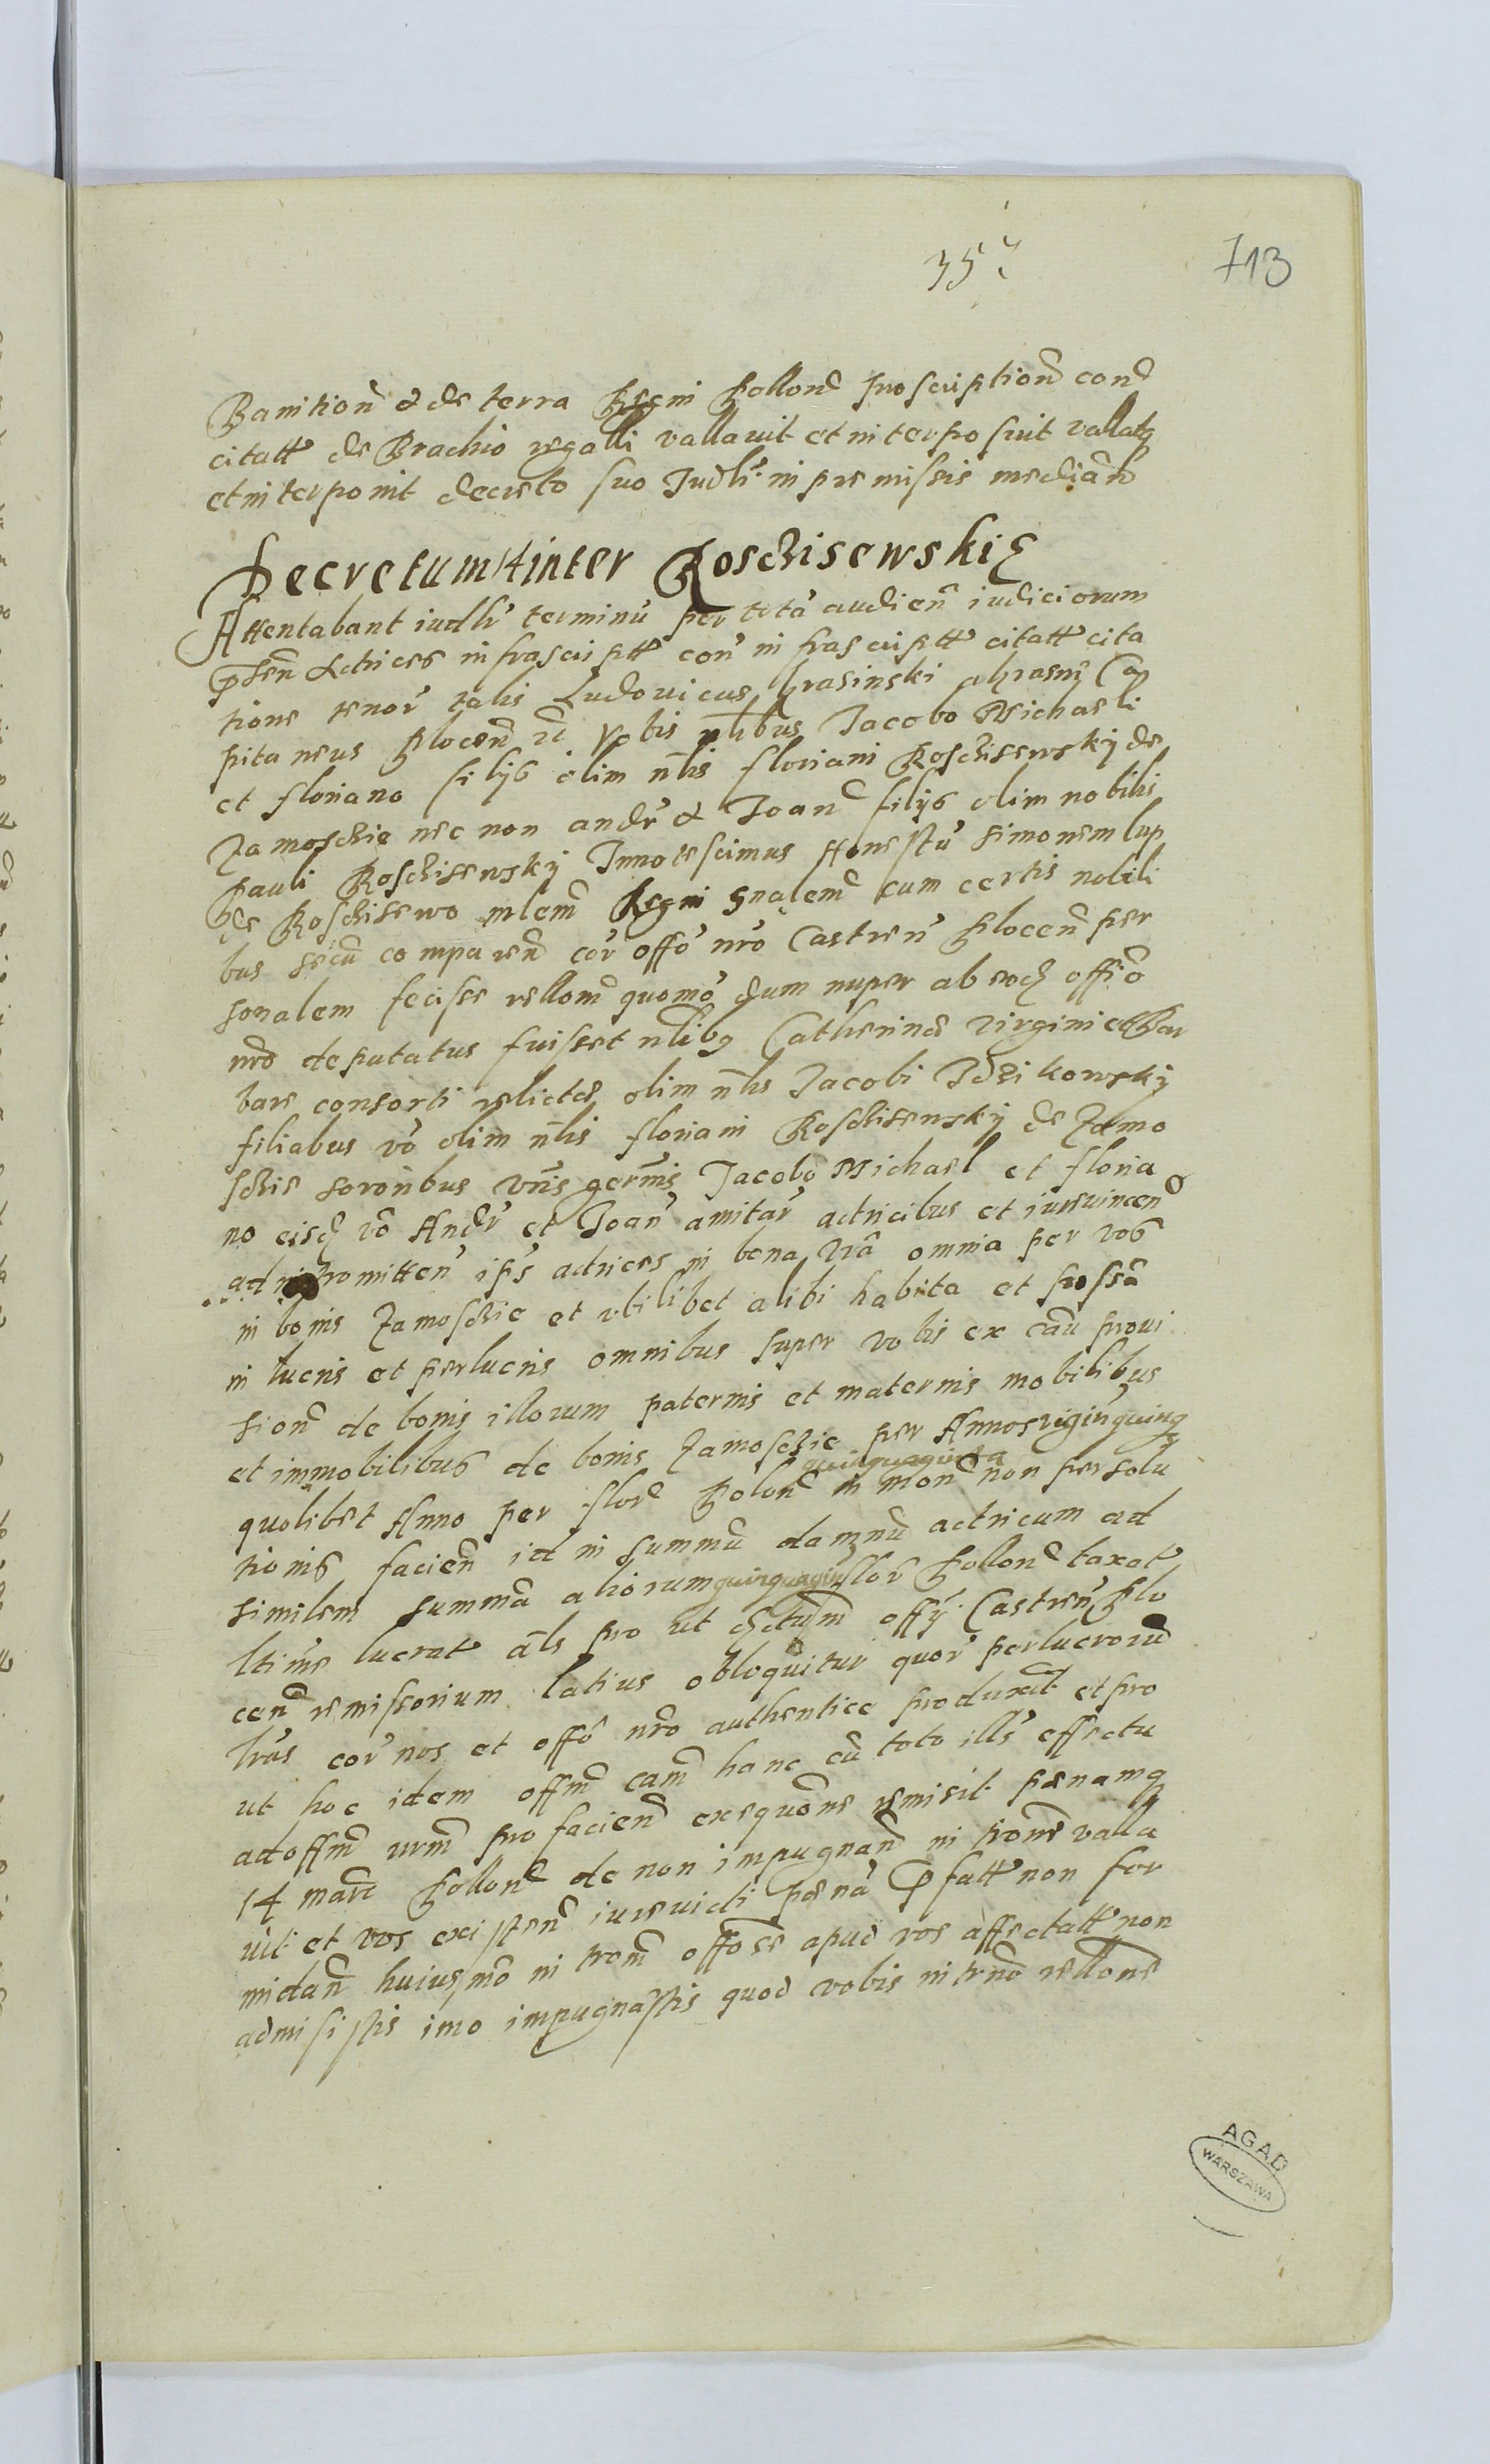 35
713
Banition̄ & de terra Regni Pollon̄ proscription̄ con̄
citatt de Brachio regalli vallavit et interposuit vallatq
et interponit decreto suo Judli in premissis median̄
Decretum Hinter Roschisewskie
Attentabant iudlr terminū per totā audien̄ iudiciorum
p̄sen̄ Actrices infrascriptt con̄ infrascriptt citatt cita
tione tenor talis Ludovicus Krasinski a Krasne Ca
pitaneus Plocen̄ Vobis nlibus Jacobo Michaeli
et Floriano filijs olim nlis Floriani Roschisewskÿ de
Zamoschie nec non andr & Joan̄ filijs olim nobilis
Pauli Roschisewskÿ Innotescimus Honestū Simonem lup
de Roschisewo mlem̄ Regni gnalem̄ cum certis nobili
bus secū comparen̄ cor offō nrō Castren̄ Plocen̄ per
sonalem fecisse rellom̄ quomō dum nuper ab eod offiō
nrō deputatus fuisset nlibq Catherine virgini et Bar
bare consorti relicte olim nlis Jacobi Idzikowskÿ
filiabus vō olim nlis Floriani Roschisewskÿ de Zamo
schie sororibus vris germis Jacobo Michael et Floria
no eisd vō Andr et Joan̄ amitar actricibus et iurevincen̄
ad intromitten̄ ips actrices in bona vrā omnia per vos
in bonis Zamoschie et vbilibet alibi habita et possā
in lucris et perlucris omnibus super vobis ex cāu provi
sion̄ de bonis illorum paternis et maternis mobilibus
et immobilibus de bonis Zamoschie per Annos vigin quinq
quinquaginta
quolibet Anno per flor̄ Polon̄ in mon̄ non persolu
tionis facien̄ id in summū damnū actricum ad
similem summā aliorum quinquagin flor̄ Pollon̄ taxat
ltime lucrat āls pro ut dectum̄ offÿ Castren̄ Plo
cen̄ remissorium latius obloquitur quor perlucrorū
lrās cor nos et offō nrō authentice produxit et pro
ut hoc idem offm̄ cam̄ hanc cū toto ills effectu
ad offm̄ nrm̄ pro facien̄ exequōne remisit penamq
14 marc Pollon̄ de non impugnan̄ in tione valla
vit et vos existen̄ iurevicti penā p̄fatt non for
midan̄ huiusmō in trom̄ offōse apud vos affectatt non
admisistis imo impugnastis quod vobis in trnō rellone
AGAD
WARSZAWA